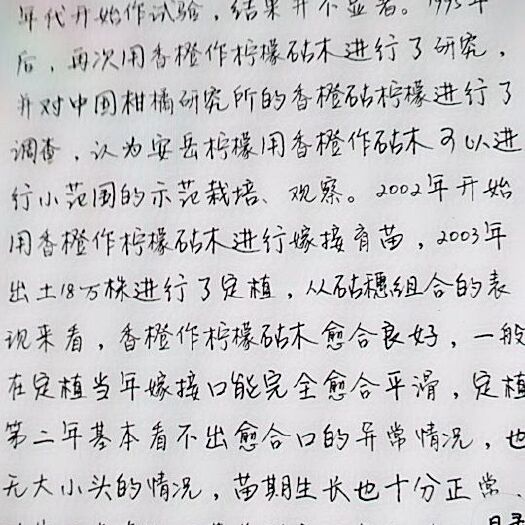 年代开始作试验，结果并不显著。1995年
后，再次用香橙作柠檬砧木进行了研究，
并对中国柑橘研究所的香橙砧柠檬进行了
调查，认为安岳柠檬用香橙作砧木可以进
行小范围的示范栽培、观察。2002年开始
用香橙作柠檬砧木进行嫁接育苗，2003年
出土18万株进行了定植，从砧穗组合的表
现来看，香橙作柠檬砧木愈合良好，一般
在定植当年嫁接口能完全愈合平滑，定植
第二年基本看不出愈合口的异常情况，也
无大小头的情况，苗期生长也十分正常。